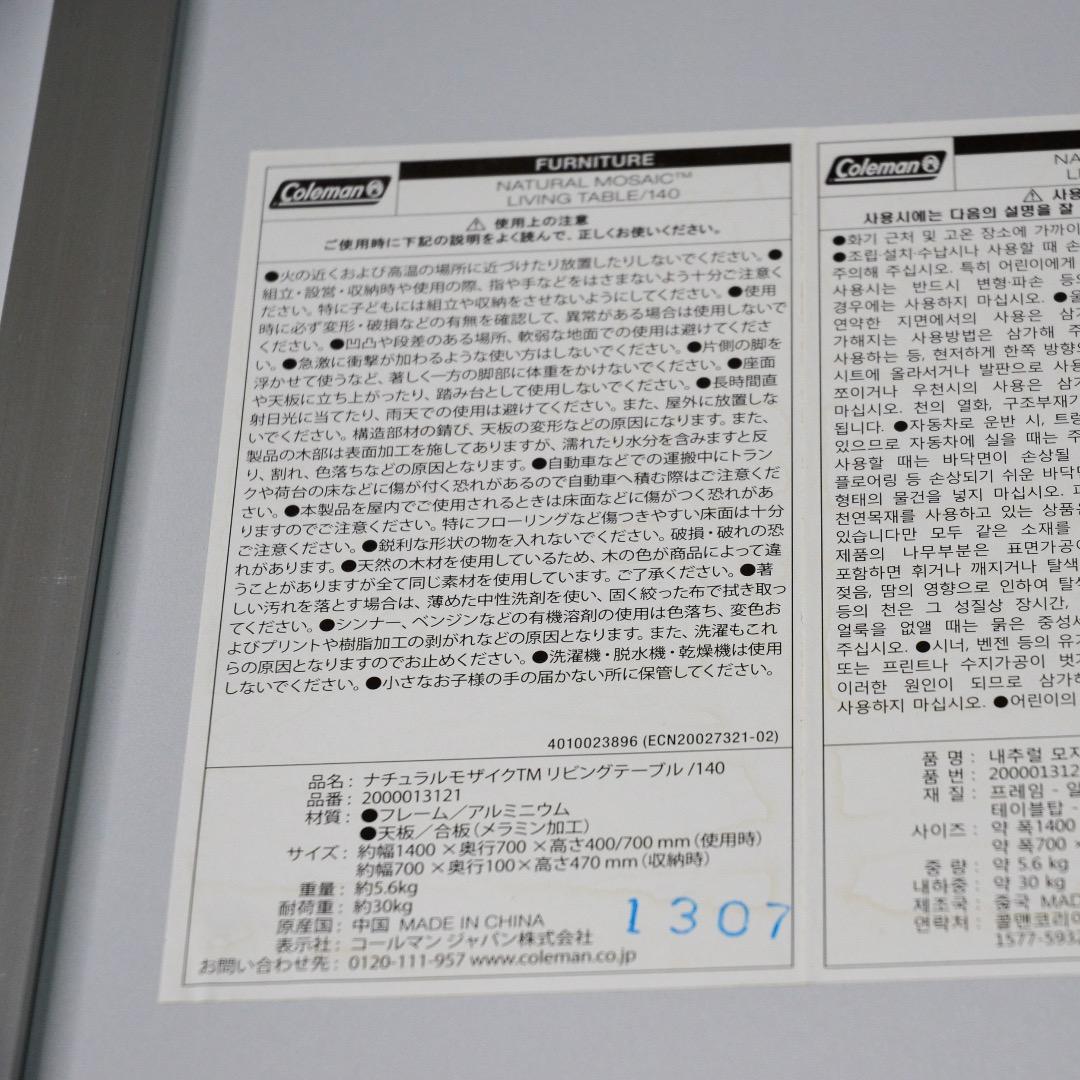 Coleman
FURNITURE
NATURAL MOSAIC™
LIVING TABLE/140
⚠ 使用上の注意
ご使用時に下記の説明をよく読んで、正しくお使いください。
●火の近くおよび高温の場所に近づけたり放置したりしないでください。●
組立・設営・収納時や使用の際、指や手などをはさまないよう十分ご注意く
ださい。特に子どもには組立や収納をさせないようにしてください。●使用
時に必ず変形・破損などの有無を確認して、異常がある場合は使用しないで
ください。●凹凸や段差のある場所、軟弱な地面での使用は避けてくださ
い。●急激に衝撃が加わるような使い方はしないでください。●片側の脚を
浮かせて使うなど、著しく一方の脚部に体重をかけないでください。●座面
や天板に立ち上がったり、踏み台として使用しないでください。●長時間直
射日光に当てたり、雨天での使用は避けてください。また、屋外に放置しな
いでください。構造部材の錆び、天板の変形などの原因になります。また、
製品の木部は表面加工を施してありますが、濡れたり水分を含みますと反
り、割れ、色落ちなどの原因となります。●自動車などでの運搬中にトラン
クや荷台の床などに傷が付く恐れがあるので自動車へ積む際はご注意くだ
さい。●本製品を屋内でご使用されるときは床面などに傷がつく恐れがあ
りますのでご注意ください。特にフローリングなど傷つきやすい床面は十分
ご注意ください。●鋭利な形状の物を入れないでください。破損・破れの恐
れがあります。●天然の木材を使用しているため、木の色が商品によって違
うことがありますが全て同じ素材を使用しています。ご了承ください。●著
しい汚れを落とす場合は、薄めた中性洗剤を使い、固く絞った布で拭き取っ
てください。●シンナー、ベンジンなどの有機溶剤の使用は色落ち、変色お
よびプリントや樹脂加工の剥がれなどの原因となります。また、洗濯もこれ
らの原因となりますのでお止めください。●洗濯機・脱水機・乾燥機は使用
しないでください。●小さなお子様の手の届かない所に保管してください。
4010023896 (ECN20027321-02)
品名：ナチュラルモザイクTM リビングテーブル /140
品番：2000013121
材質：●フレーム／アルミニウム
●天板／合板（メラミン加工）
サイズ：約幅1400 ×奥行700 ×高さ400/700 mm（使用時）
約幅700 ×奥行100×高さ470 mm（収納時）
重量：約5.6kg
耐荷重：約30kg
原産国：中国 MADE IN CHINA
表示社：コールマン ジャパン株式会社
お問い合わせ先：0120-111-957 www.coleman.co.jp
1307
Coleman
NA
LI
⚠ 사용
사용시에는 다음의 설명을 잘
●화기 근처 및 고온 장소에 가까이
●조립·설치·수납시나 사용할 때 손
주의해 주십시오. 특히 어린이에게
사용시는 반드시 변형·파손 등의
경우에는 사용하지 마십시오. ●울
연약한 지면에서의 사용은 삼가
가해지는 사용방법은 삼가해 주
사용하는 등, 현저하게 한쪽 방향으
시트에 올라서거나 발판으로 사용
쪼이거나 우천시의 사용은 삼가
마십시오. 천의 열화, 구조부재가
됩니다. ●자동차로 운반 시, 트렁
있으므로 자동차에 실을 때는 주
사용할 때는 바닥면이 손상될
플로어링 등 손상되기 쉬운 바닥면
형태의 물건을 넣지 마십시오. 파
천연목재를 사용하고 있는 상품은
있습니다만 모두 같은 소재를
제품의 나무부분은 표면가공이
포함하면 휘거나 깨지거나 탈색
젖음, 땀의 영향으로 인하여 탈색
등의 천은 그 성질상 장시간,
얼룩을 없앨 때는 묽은 중성세
주십시오. ●시너, 벤젠 등의 유기
또는 프린트나 수지가공이 벗겨
이러한 원인이 되므로 삼가하
사용하지 마십시오. ●어린이의
품 명 : 내추럴 모자
품 번 : 200001312
재 질 : 프레임 - 알
테이블탑 -
사이즈 : 약 폭1400
약 폭700 ×
중 량 : 약 5.6 kg
내하중 : 약 30 kg
제조국 : 중국 MAD
연락처 : 콜맨코리아
1577-5932